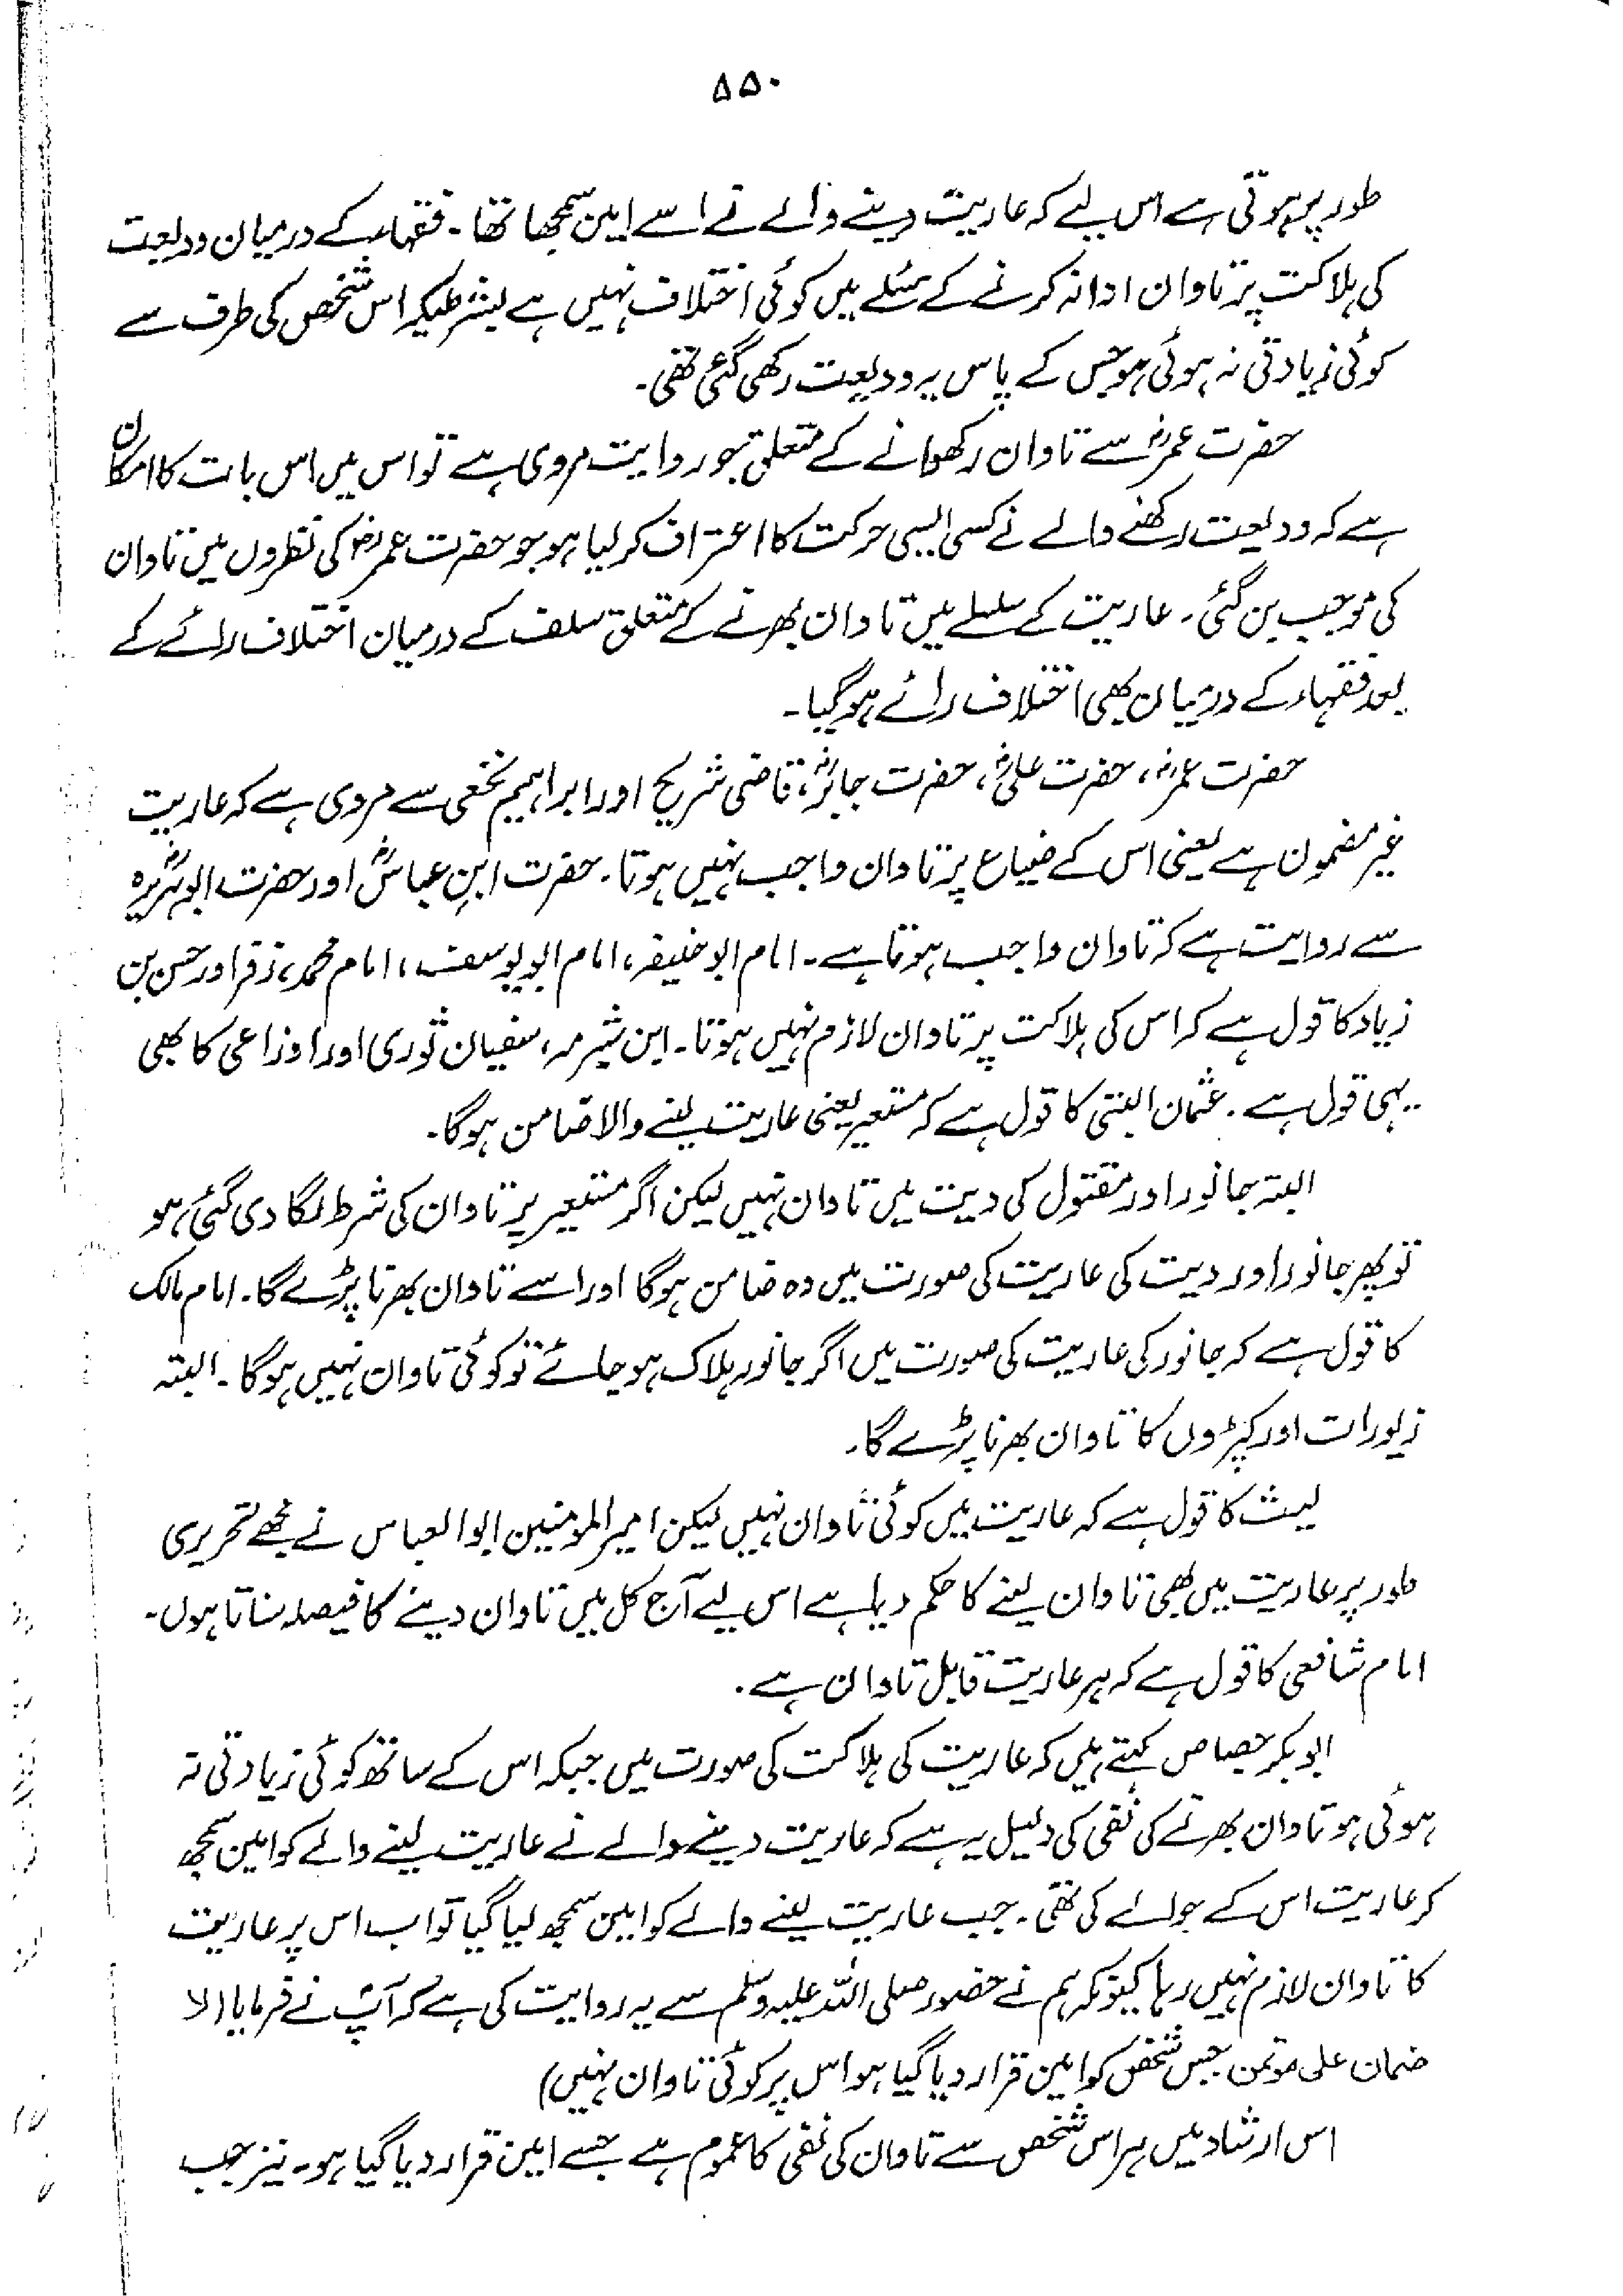 ۵۵۰
طور پر ہوتی ہے اس لیے کہ عاریت دینے والے نے اسے امین سمجھا تھا۔ فقہاء کے درمیان ودیعت
کی ہلاکت پر تاوان ادا نہ کرنے کے مسئلے میں کوئی اختلاف نہیں ہے بشرطیکہ اس شخص کی طرف سے
کوئی زیادتی نہ ہوئی ہو جس کے پاس یہ ودیعت رکھی گئی تھی۔
حضرت عمرؓ سے تاوان رکھوانے کے متعلق جو روایت مروی ہے تو اس میں اس بات کا امکان
ہے کہ ودیعت رکھنے والے نے کسی ایسی حرکت کا اعتراف کر لیا ہو جو حضرت عمرؓ کی نظروں میں تاوان
کی موجب بن گئی۔ عاریت کے سلسلے میں تاوان بھرنے کے متعلق سلف کے درمیان اختلاف رائے کے
بعد فقہاء کے درمیان بھی اختلاف رائے ہو گیا۔
حضرت عمرؓ، حضرت علیؓ، حضرت جابرؓ، قاضی شریح اور ابراہیم نخعی سے مروی ہے کہ عاریت
غیر مضمون ہے یعنی اس کے ضیاع پر تاوان واجب نہیں ہوتا۔ حضرت ابن عباسؓ اور حضرت ابوہریرہؓ
سے روایت ہے کہ تاوان واجب ہوتا ہے۔ امام ابو حنیفہ، امام ابو یوسف، امام محمد، زفر اور حسن بن
زیاد کا قول ہے کہ اس کی ہلاکت پر تاوان لازم نہیں ہوتا۔ ابن شبرمہ، سفیان ثوری اور اوزاعی کا بھی
یہی قول ہے۔ عثمان البتی کا قول ہے کہ مستعیر یعنی عاریت لینے والا ضامن ہوگا۔
البتہ جانور اور مقتول کی دیت میں تاوان نہیں لیکن اگر مستعیر پر تاوان کی شرط لگا دی گئی ہو
تو پھر جانور اور دیت کی عاریت کی صورت میں وہ ضامن ہوگا اور اسے تاوان بھرنا پڑے گا۔ امام مالک
کا قول ہے کہ جانور کی عاریت کی صورت میں اگر جانور ہلاک ہو جائے تو کوئی تاوان نہیں ہوگا۔ البتہ
زیورات اور کپڑوں کا تاوان بھرنا پڑے گا۔
لیث کا قول ہے کہ عاریت میں کوئی تاوان نہیں لیکن امیر المومنین ابو العباس نے مجھے تحریری
طور پر عاریت میں بھی تاوان لینے کا حکم دیا ہے اس لیے آج کل میں تاوان دینے کا فیصلہ سناتا ہوں۔
امام شافعی کا قول ہے کہ ہر عاریت قابل تاوان ہے۔
ابو بکر جصاص کہتے ہیں کہ عاریت کی ہلاکت کی صورت میں جبکہ اس کے ساتھ کوئی زیادتی نہ
ہوئی ہو تاوان بھرنے کی نفی کی دلیل یہ ہے کہ عاریت دینے والے نے عاریت لینے والے کو امین سمجھ
کر عاریت اس کے حوالے کی تھی۔ جب عاریت لینے والے کو امین سمجھ لیا گیا تو اب اس پر عاریت
کا تاوان لازم نہیں رہا کیونکہ ہم نے حضور صلی اللہ علیہ وسلم سے یہ روایت کی ہے کہ آپؐ نے فرمایا (لا
ضمان علی موتمن جس شخص کو امین قرار دیا گیا ہو اس پر کوئی تاوان نہیں)
اس ارشاد میں ہر اس شخص سے تاوان کی نفی کا عموم ہے جسے امین قرار دیا گیا ہو۔ نیز جب